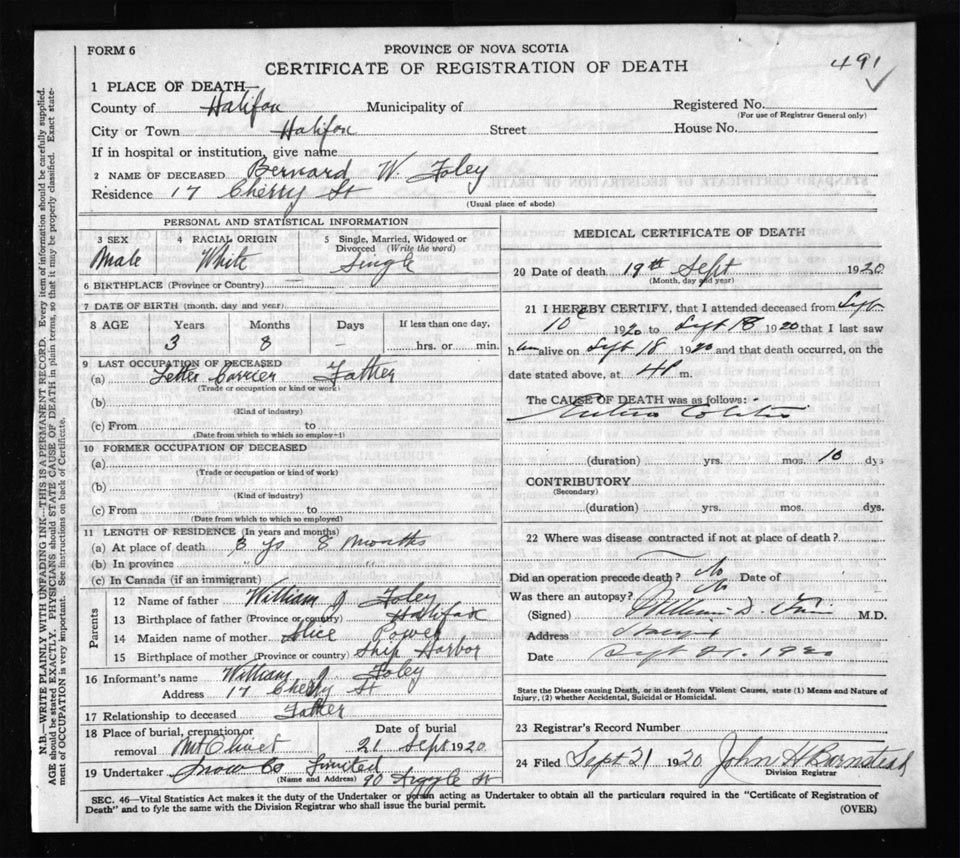 FORM 6
PROVINCE OF NOVA SCOTIA
CERTIFICATE OF REGISTRATION OF DEATH
491
1 PLACE OF DEATH—
County of Halifax Municipality of Registered No.
(For use of Registrar General only)
City or Town Halifax Street House No.
If in hospital or institution, give name
2 NAME OF DECEASED Bernard W. Foley
Residence 17 Cherry St
(Usual place of abode)
PERSONAL AND STATISTICAL INFORMATION
3 SEX 4 RACIAL ORIGIN 5 Single, Married, Widowed or Divorced (Write the word)
Male White Single
6 BIRTHPLACE (Province or Country)
7 DATE OF BIRTH (month, day and year)
8 AGE Years Months Days If less than one day,
3 8 – hrs. or min.
9 LAST OCCUPATION OF DECEASED
(a) Letter Carrier Father
(Trade or occupation or kind of work)
(b)
(Kind of industry)
(c) From to
(Date from which to which so employed)
10 FORMER OCCUPATION OF DECEASED
(a)
(Trade or occupation or kind of work)
(b)
(Kind of industry)
(c) From to
(Date from which to which so employed)
11 LENGTH OF RESIDENCE (In years and months)
(a) At place of death 3 ys 8 months
(b) In province " "
(c) In Canada (if an immigrant)
Parents
12 Name of father William J Foley
13 Birthplace of father (Province or country) Halifax
14 Maiden name of mother Alice Power
15 Birthplace of mother (Province or country) Ship Harbor
16 Informant's name William J Foley
Address 17 Cherry St
17 Relationship to deceased Father
18 Place of burial, cremation or removal Mt Olivet Date of burial 21 Sept 1920
19 Undertaker Snow Co Limited
(Name and Address) 90 Argyle St
MEDICAL CERTIFICATE OF DEATH
20 Date of death 19th Sept 1920
(Month, day and year)
21 I HEREBY CERTIFY, that I attended deceased from Sept
10 1920 to Sept 18 1920 that I last saw
him alive on Sept 18 1920 and that death occurred, on the
date stated above, at m.
The CAUSE OF DEATH was as follows:
Entero Colitis
(duration) yrs. mos. 10 dys
CONTRIBUTORY
(Secondary)
(duration) yrs. mos. dys.
22 Where was disease contracted if not at place of death?
Did an operation precede death? No Date of
Was there an autopsy? No
(Signed) William D. M.D.
Address
Date Sept 21. 1920
State the Disease causing Death, or in death from Violent Causes, state (1) Means and Nature of
Injury, (2) whether Accidental, Suicidal or Homicidal.
23 Registrar's Record Number
24 Filed Sept 21 1920 John H Barnstead
Division Registrar
SEC. 46—Vital Statistics Act makes it the duty of the Undertaker or person acting as Undertaker to obtain all the particulars required in the "Certificate of Registration of
Death" and to fyle the same with the Division Registrar who shall issue the burial permit.
(OVER)
N.B.—WRITE PLAINLY WITH UNFADING INK—THIS IS A PERMANENT RECORD. Every item of information should be carefully supplied.
AGE should be stated EXACTLY. PHYSICIANS should STATE CAUSE OF DEATH in plain terms, so that it may be properly classified. Exact state-
ment of OCCUPATION is very important. See instructions on back of Certificate.